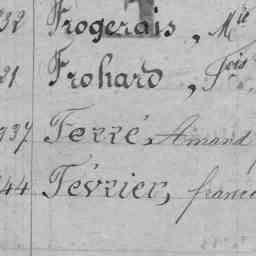 32 Frogerais, Mie
21 Frohard, Fois
937 Ferré, Amand
44 Février, franc